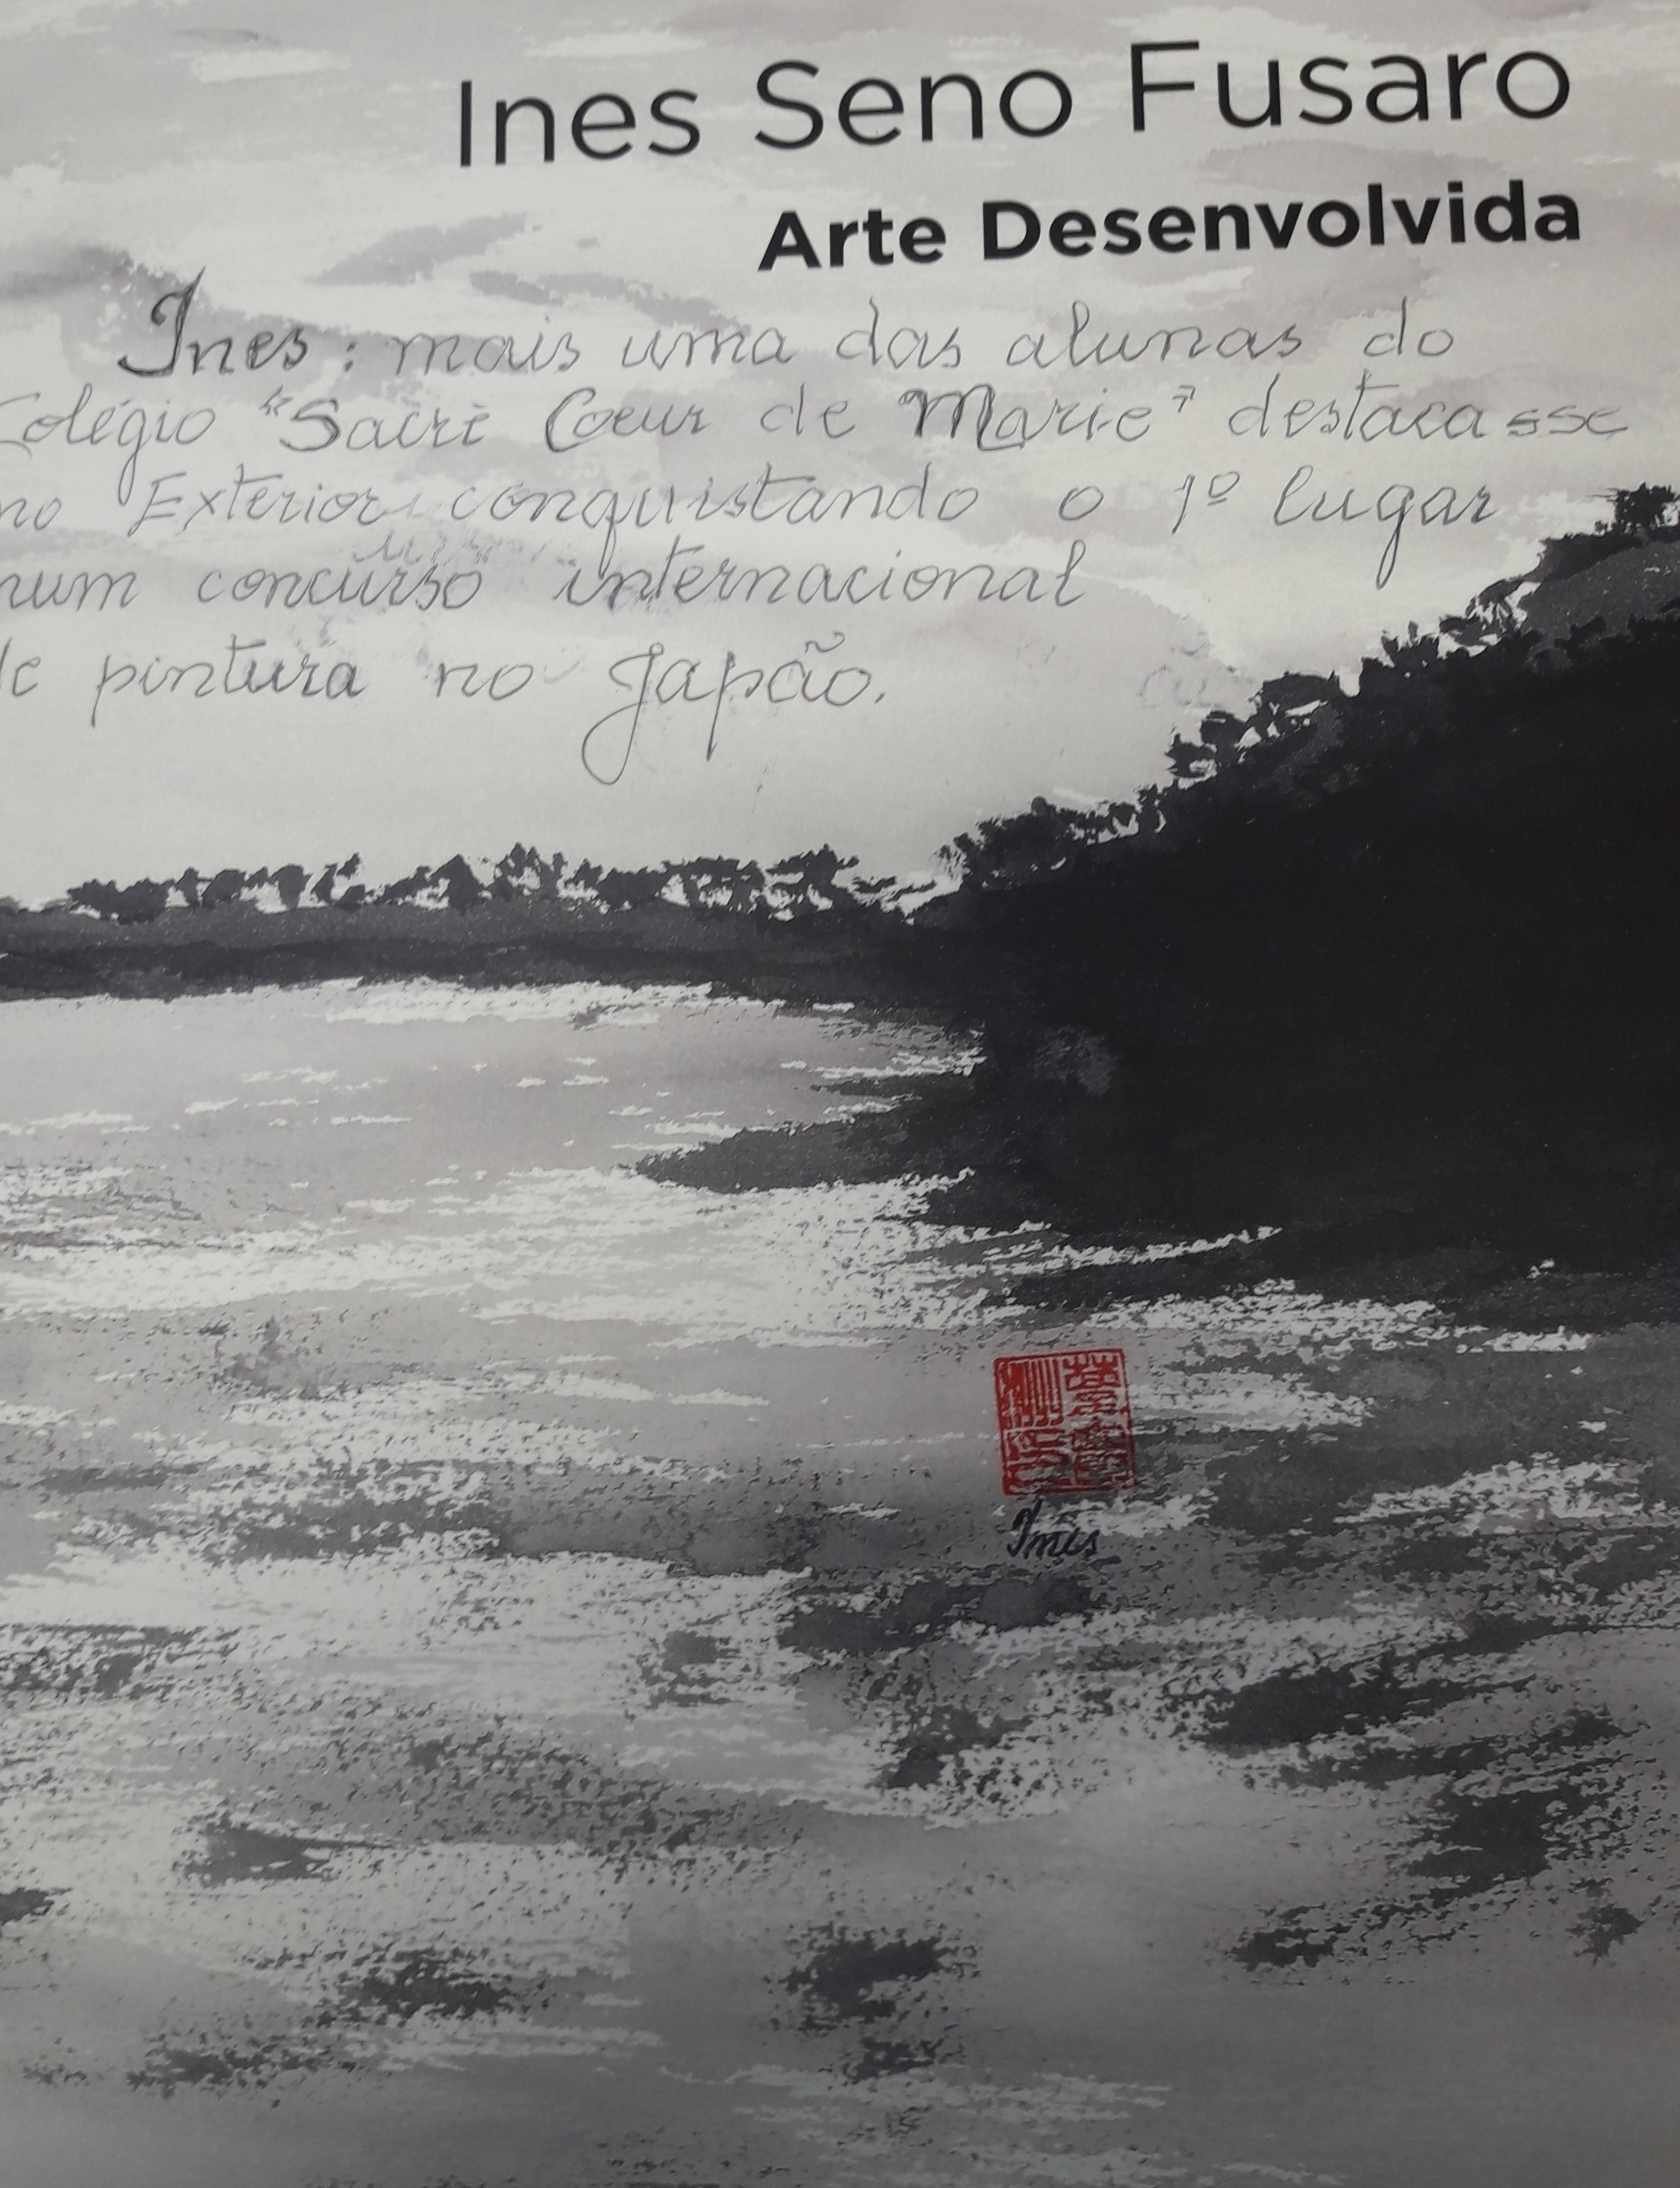 Ines Seno Fusaro
Arte Desenvolvida
Ines: mais uma das alunas do
Colégio "Sacrè Coeur de Marie" destacasse
no Exterior conquistando o 1º lugar
num concurso internacional
de pintura no Japão.
Ines